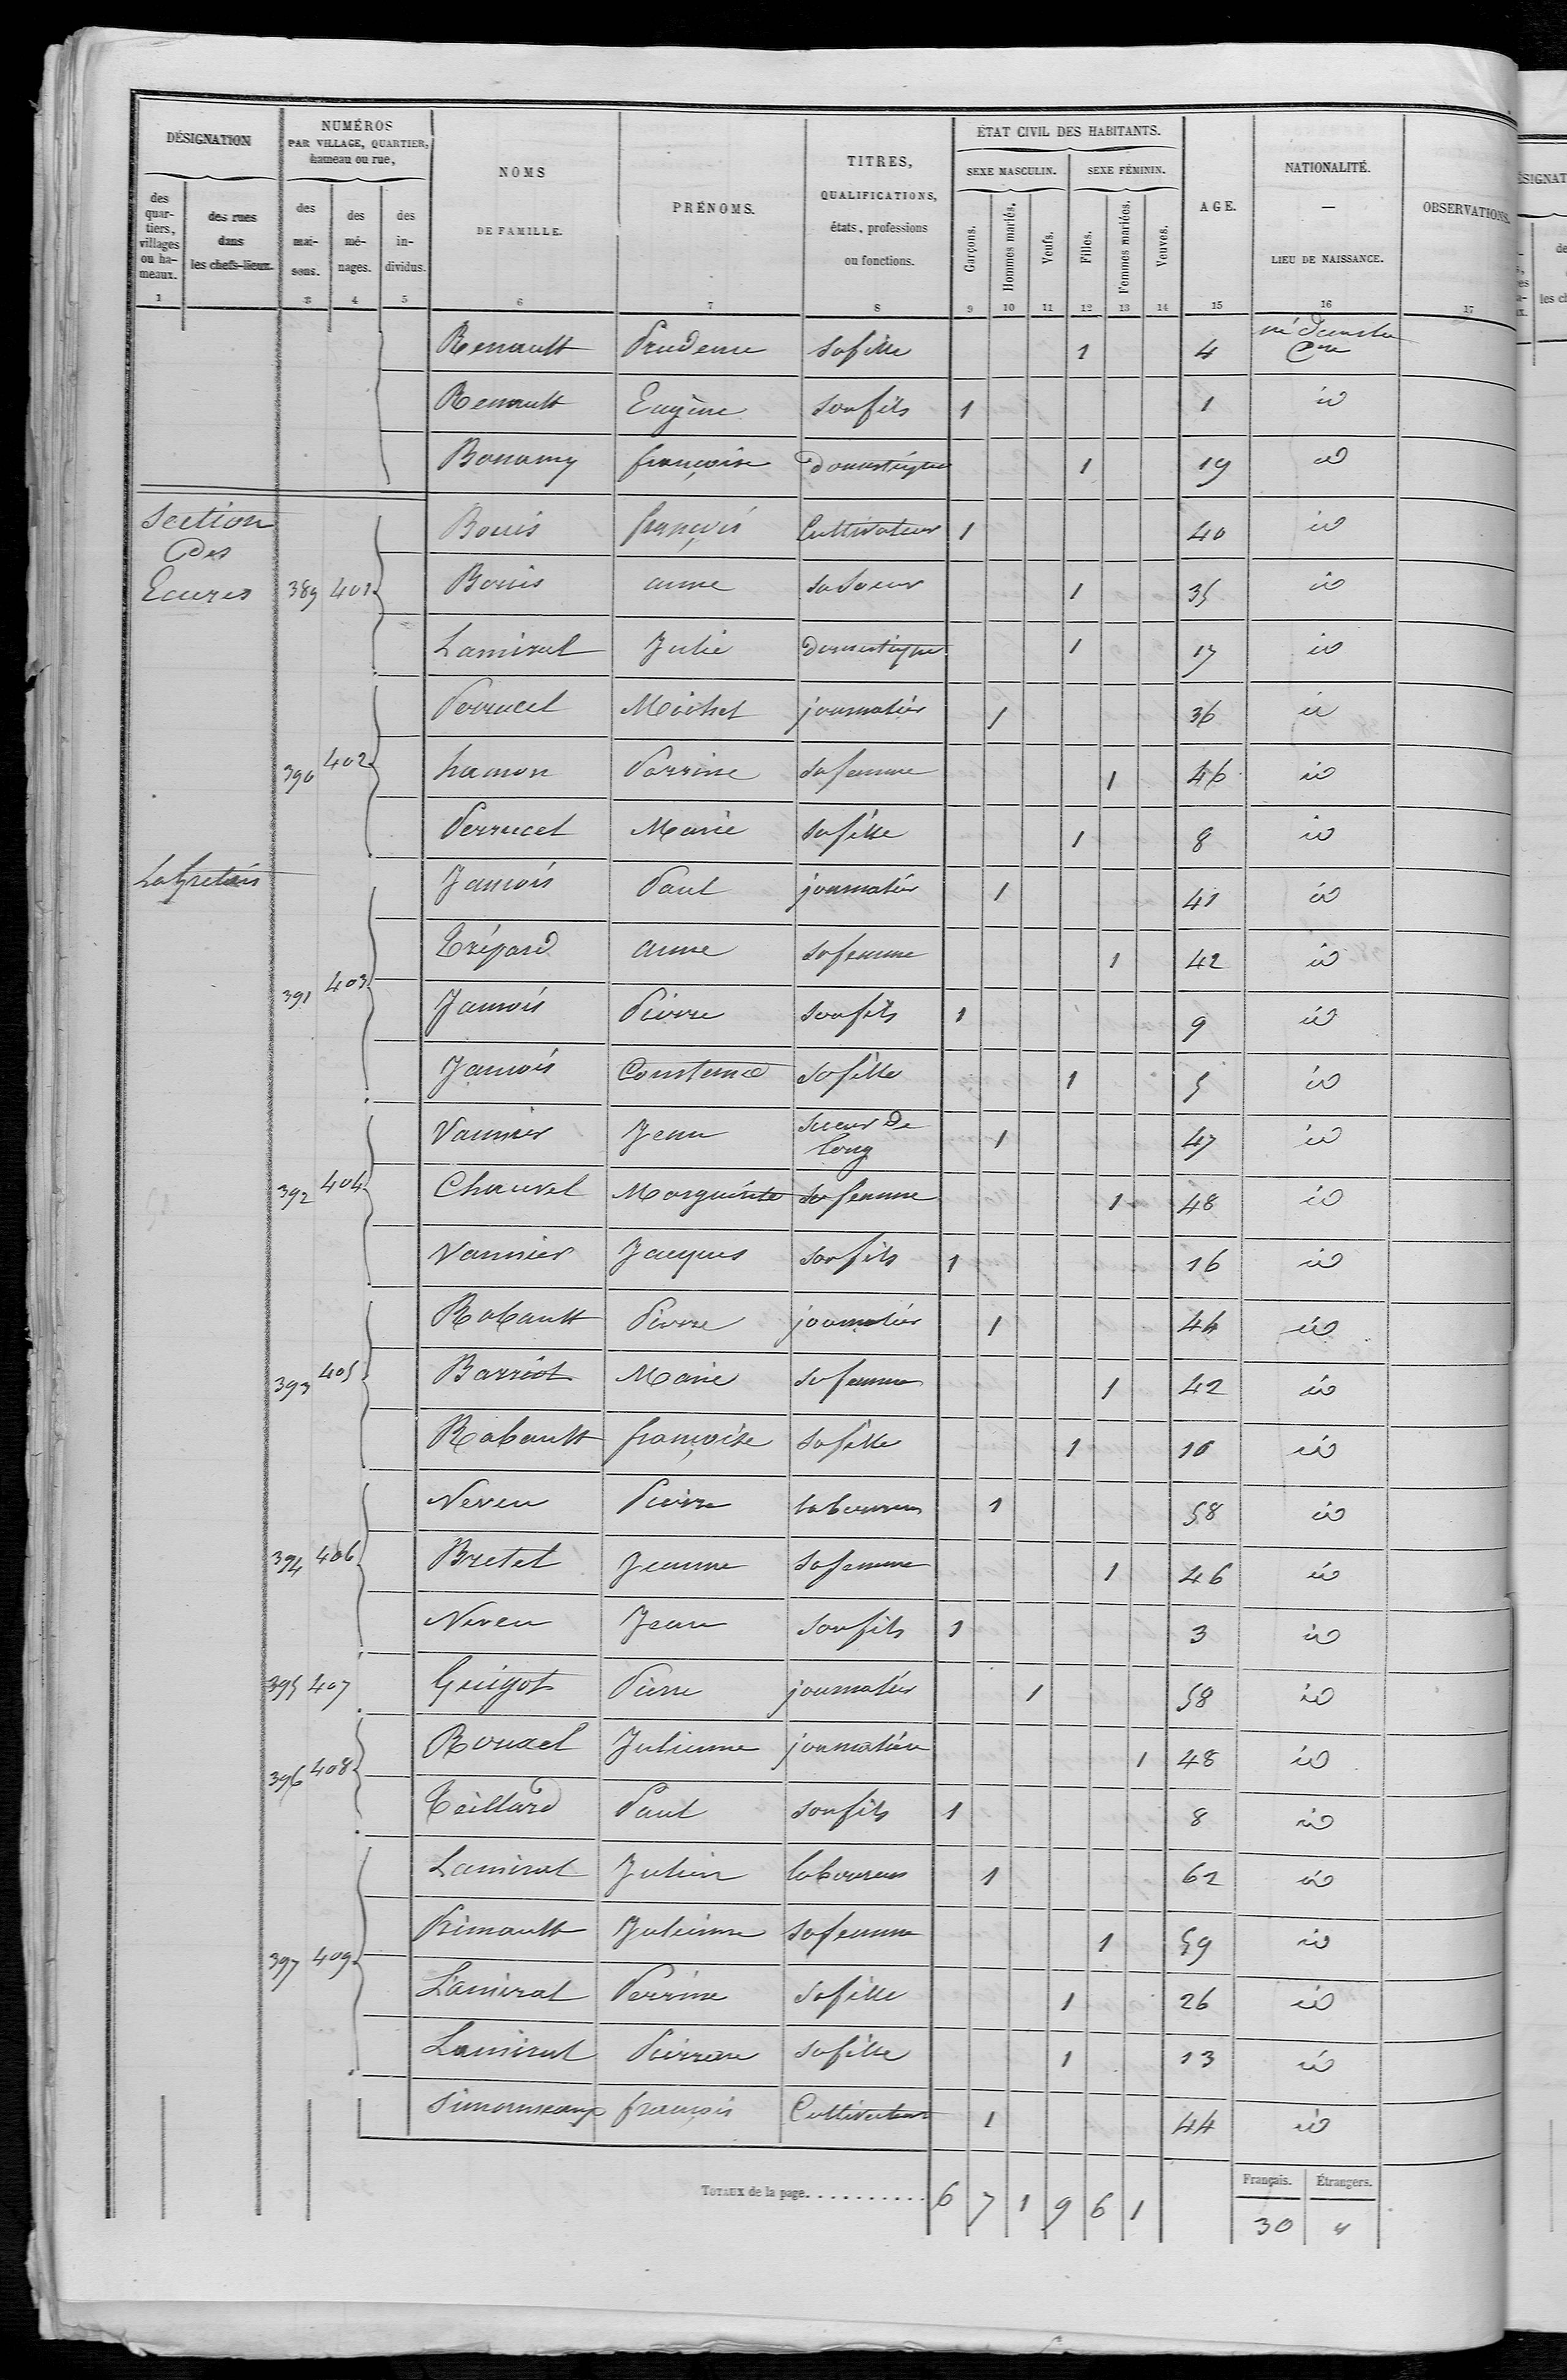 DÉSIGNATION
NUMÉROS
PAR VILLAGE, QUARTIER,
hameau ou rue,
NOMS
DE FAMILLE.
PRÉNOMS.
TITRES,
QUALIFICATIONS,
états, professions
ou fonctions.
ÉTAT CIVIL DES HABITANTS.
SEXE MASCULIN.
SEXE FÉMININ.
AGE.
NATIONALITÉ.
—
LIEU DE NAISSANCE.
OBSERVATIONS.
des
quar-
tiers,
villages
ou ha-
meaux.
des rues
dans
les chefs-lieux.
des
mai-
sons.
des
mé-
nages.
des
in-
dividus.
Garçons.
Hommes mariés.
Veufs.
Filles.
Femmes mariées.
Veuves.
1 3 4 5 6 7 8 9 10 11 12 13 14 15 16 17
Renault Prudence sa fille 1 4 né dans la
Cne
Renault Eugène son fils 1 1 id
Bonamy françoise domestique 1 19 id
Section
des
Ecures
Bouis françois Cultivateur 1 40 id
389 401 Bouis anne sa soeur 1 35 id
Lamiral Julie domestique 1 17 id
Perrucel Michel journalier 1 36 id
390 402 hamon Perrine sa femme 1 46 id
Perrucel Marie sa fille 1 8 id
Jamois Paul journalier 1 41 id
Trépard anne sa femme 1 42 id
391 403 Jamois Pierre son fils 1 9 id
Jamois Constance sa fille 1 5 id
Vannier Jean scieur de
long 1 47 id
392 404 Chauvel Marguerite sa femme 1 48 id
Vannier Jacques son fils 1 16 id
Rabault Pierre journalier 1 44 id
393 405 Barriot Marie sa femme 1 42 id
Rabault françoise sa fille 1 10 id
Neveu Pierre laboureur 1 58 id
394 406 Bretel Jeanne sa femme 1 46 id
Neveu Jean son fils 1 3 id
395 407 Guigot Pierre journalier 1 58 id
396 408 Rouxel Julienne journalière 1 48 id
Teillard Paul son fils 1 8 id
Lamiral Julien laboureur 1 62 id
Rimault Julienne sa femme 1 59 id
397 409 Lamiral Perrine sa fille 1 26 id
Lamiral sa fille 1 13 id
Simonneaux françois Cultivateur 1 44 id
Totaux de la page........... 6 7 1 9 6 1
Français. Étrangers.
30 "